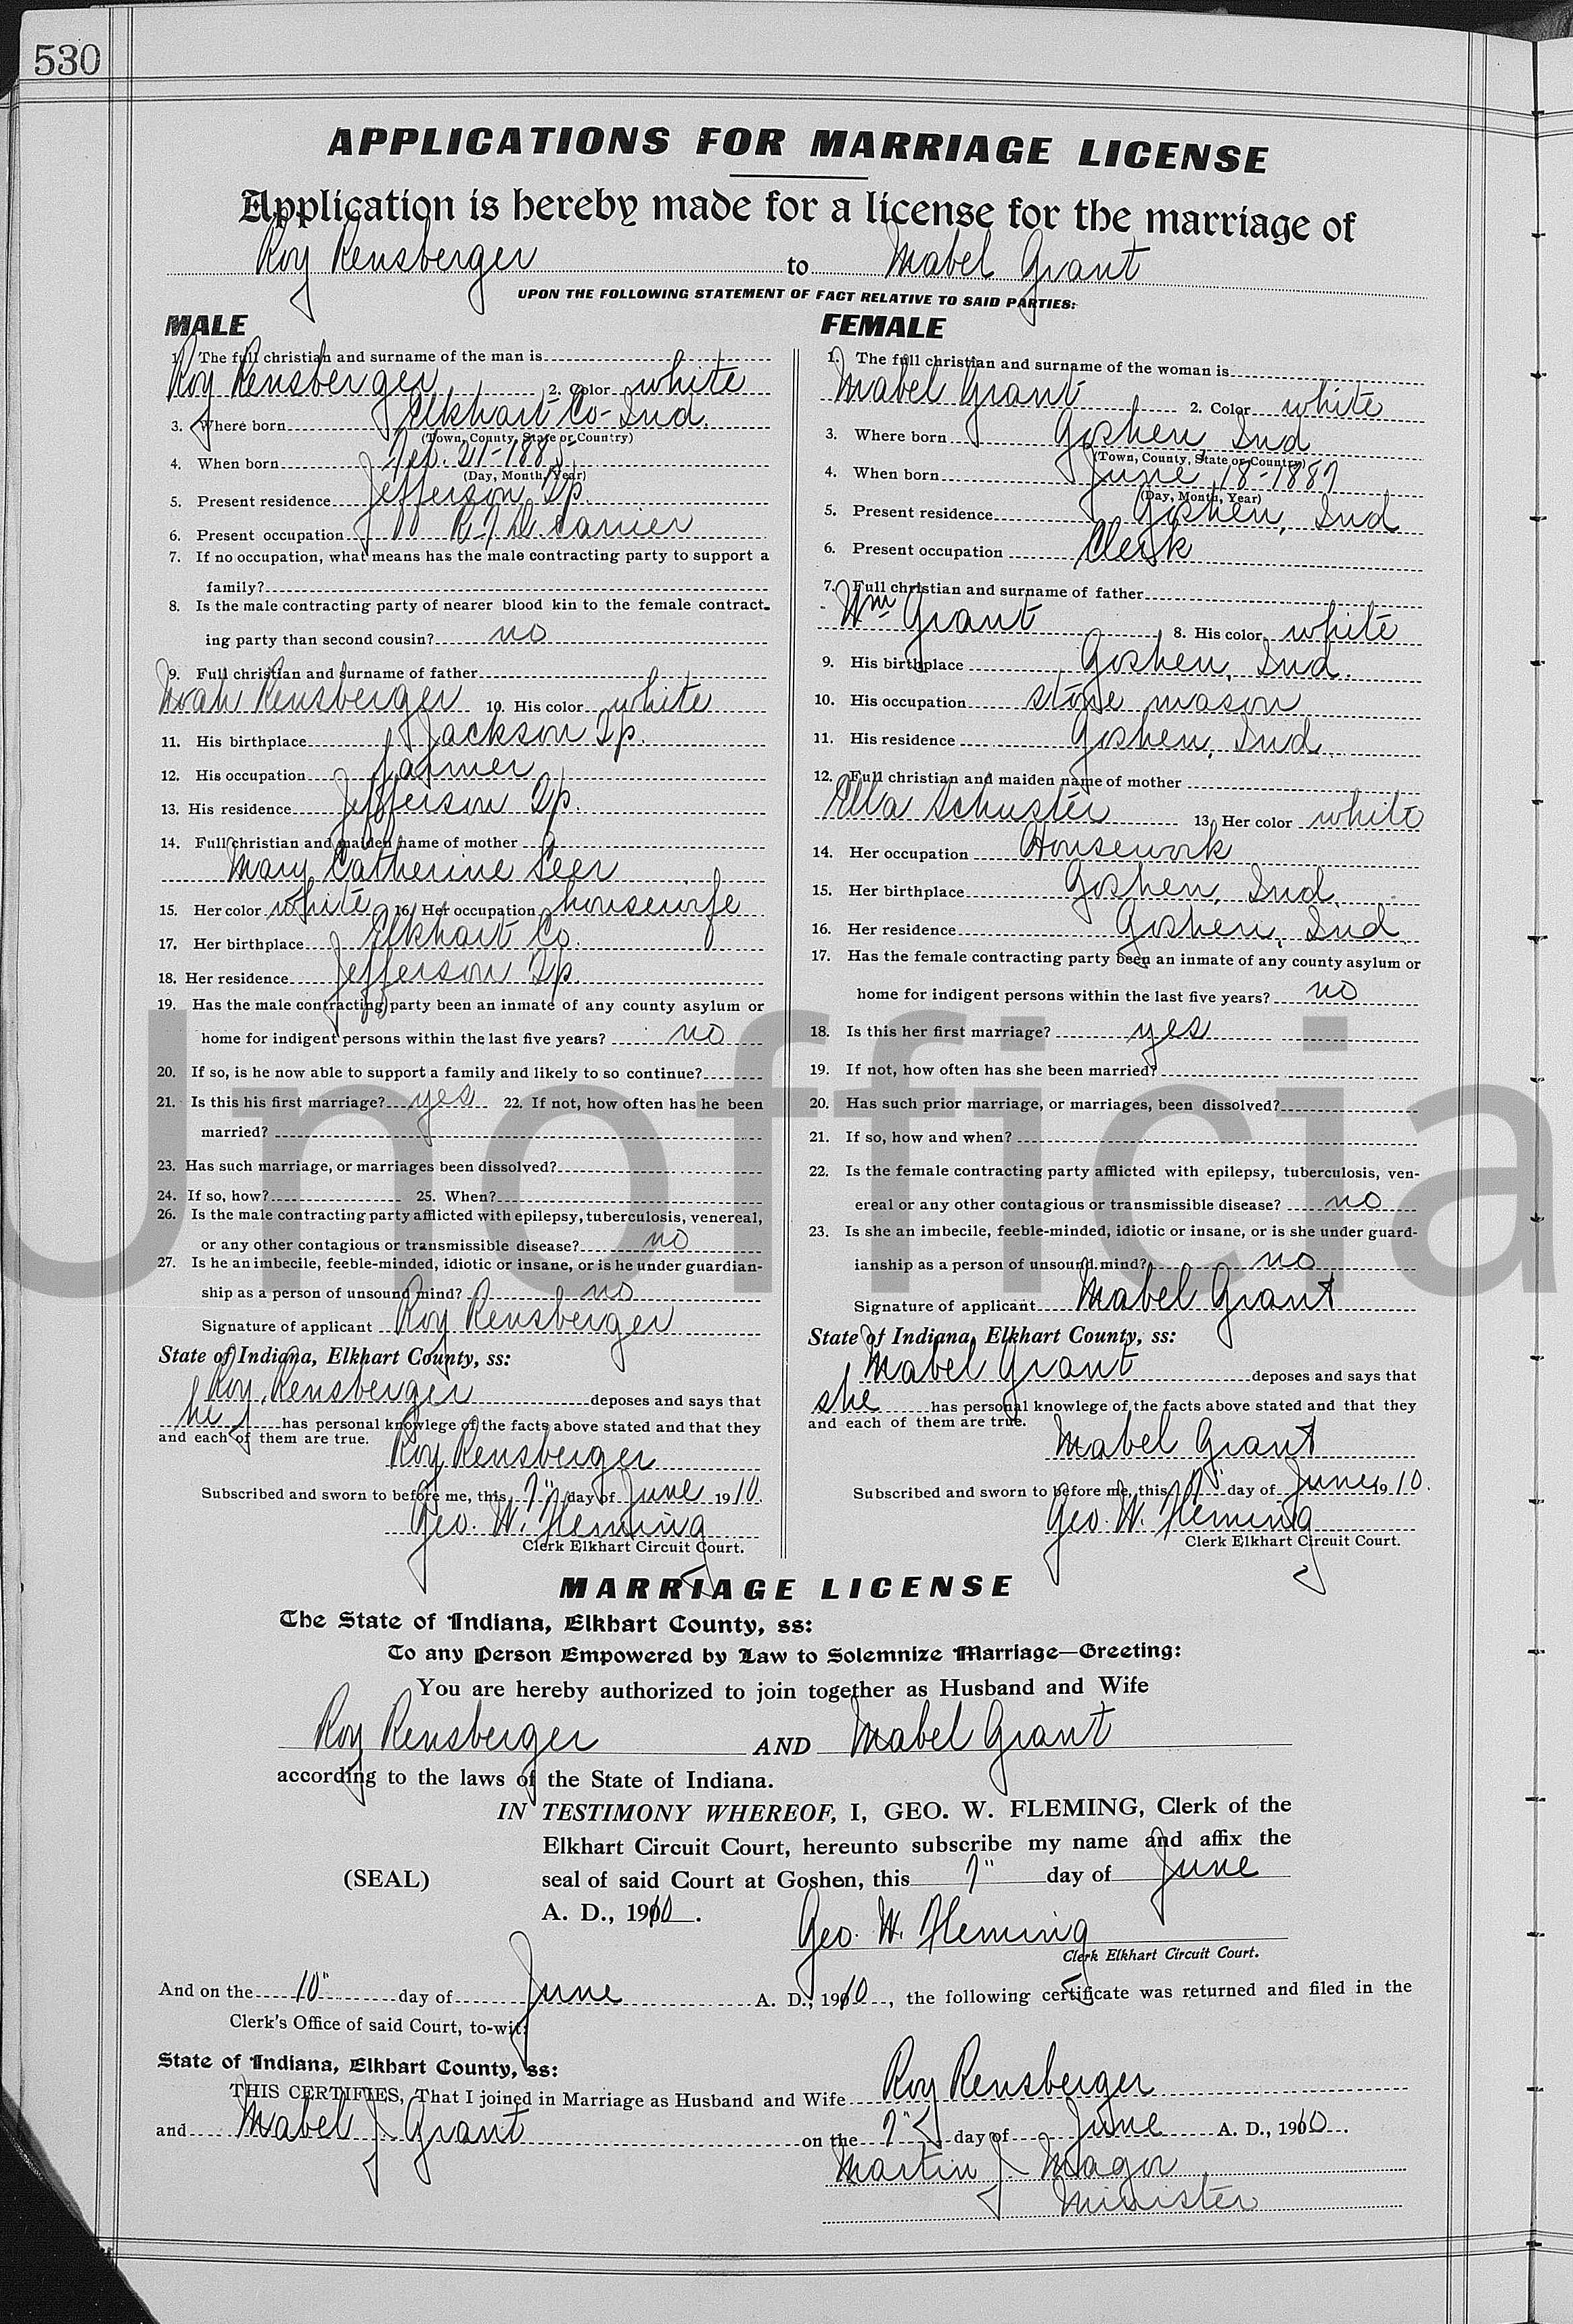 530
APPLICATIONS FOR MARRIAGE LICENSE
Application is hereby made for a license for the marriage of
Roy Rensberger to Mabel Grant
UPON THE FOLLOWING STATEMENT OF FACT RELATIVE TO SAID PARTIES:
MALE
1. The full christian and surname of the man is
Roy Rensberger 2. Color white
3. Where born Elkhart Co - Ind.
(Town, County, State or Country)
4. When born Feb. 21 - 1885
(Day, Month, Year)
5. Present residence Jefferson Tp.
6. Present occupation R.F.D. Carrier
7. If no occupation, what means has the male contracting party to support a
family?
8. Is the male contracting party of nearer blood kin to the female contract-
ing party than second cousin? no
9. Full christian and surname of father
Noah Rensberger 10. His color white
11. His birthplace Jackson Tp.
12. His occupation farmer
13. His residence Jefferson Tp.
14. Full christian and maiden name of mother
Mary Catherine
15. Her color white 16. Her occupation housewife
17. Her birthplace Elkhart Co.
18. Her residence Jefferson Tp.
19. Has the male contracting party been an inmate of any county asylum or
home for indigent persons within the last five years? no
20. If so, is he now able to support a family and likely to so continue?
21. Is this his first marriage? yes 22. If not, how often has he been
married?
23. Has such marriage, or marriages been dissolved?
24. If so, how? 25. When?
26. Is the male contracting party afflicted with epilepsy, tuberculosis, venereal,
or any other contagious or transmissible disease? no
27. Is he an imbecile, feeble-minded, idiotic or insane, or is he under guardian-
ship as a person of unsound mind? no
Signature of applicant Roy Rensberger
State of Indiana, Elkhart County, ss:
Roy Rensberger deposes and says that
he has personal knowlege of the facts above stated and that they
and each of them are true.
Roy Rensberger
Subscribed and sworn to before me, this 7" day of June 1910.
Geo. W. Fleming
Clerk Elkhart Circuit Court.
FEMALE
1. The full christian and surname of the woman is
Mabel Grant 2. Color white
3. Where born Goshen Ind
(Town, County, State or Country)
4. When born June 18 - 1887
(Day, Month, Year)
5. Present residence Goshen, Ind
6. Present occupation Clerk
7. Full christian and surname of father
Wm Grant 8. His color white
9. His birthplace Goshen, Ind.
10. His occupation stone mason
11. His residence Goshen, Ind.
12. Full christian and maiden name of mother
Ella Schuster 13. Her color white
14. Her occupation Housework
15. Her birthplace Goshen, Ind.
16. Her residence Goshen, Ind.
17. Has the female contracting party been an inmate of any county asylum or
home for indigent persons within the last five years? no
18. Is this her first marriage? yes
19. If not, how often has she been married?
20. Has such prior marriage, or marriages, been dissolved?
21. If so, how and when?
22. Is the female contracting party afflicted with epilepsy, tuberculosis, ven-
ereal or any other contagious or transmissible disease? no
23. Is she an imbecile, feeble-minded, idiotic or insane, or is she under guard-
ianship as a person of unsound mind? no
Signature of applicant Mabel Grant
State of Indiana, Elkhart County, ss:
Mabel Grant deposes and says that
she has personal knowlege of the facts above stated and that they
and each of them are true.
Mabel Grant
Subscribed and sworn to before me, this 7" day of June 1910.
Geo. W. Fleming
Clerk Elkhart Circuit Court.
Unofficia
MARRIAGE LICENSE
The State of Indiana, Elkhart County, ss:
To any Person Empowered by Law to Solemnize Marriage—Greeting:
You are hereby authorized to join together as Husband and Wife
Roy Rensberger AND Mabel Grant
according to the laws of the State of Indiana.
IN TESTIMONY WHEREOF, I, GEO. W. FLEMING, Clerk of the
Elkhart Circuit Court, hereunto subscribe my name and affix the
(SEAL) seal of said Court at Goshen, this 7" day of June
A. D., 1910.
Geo. W. Fleming
Clerk Elkhart Circuit Court.
And on the 10" day of June A. D., 1910, the following certificate was returned and filed in the
Clerk's Office of said Court, to-wit:
State of Indiana, Elkhart County, ss:
THIS CERTIFIES, That I joined in Marriage as Husband and Wife Roy Rensberger
and Mabel Grant on the 7" day of June A. D., 1910.
Martin J. Magor
Minister